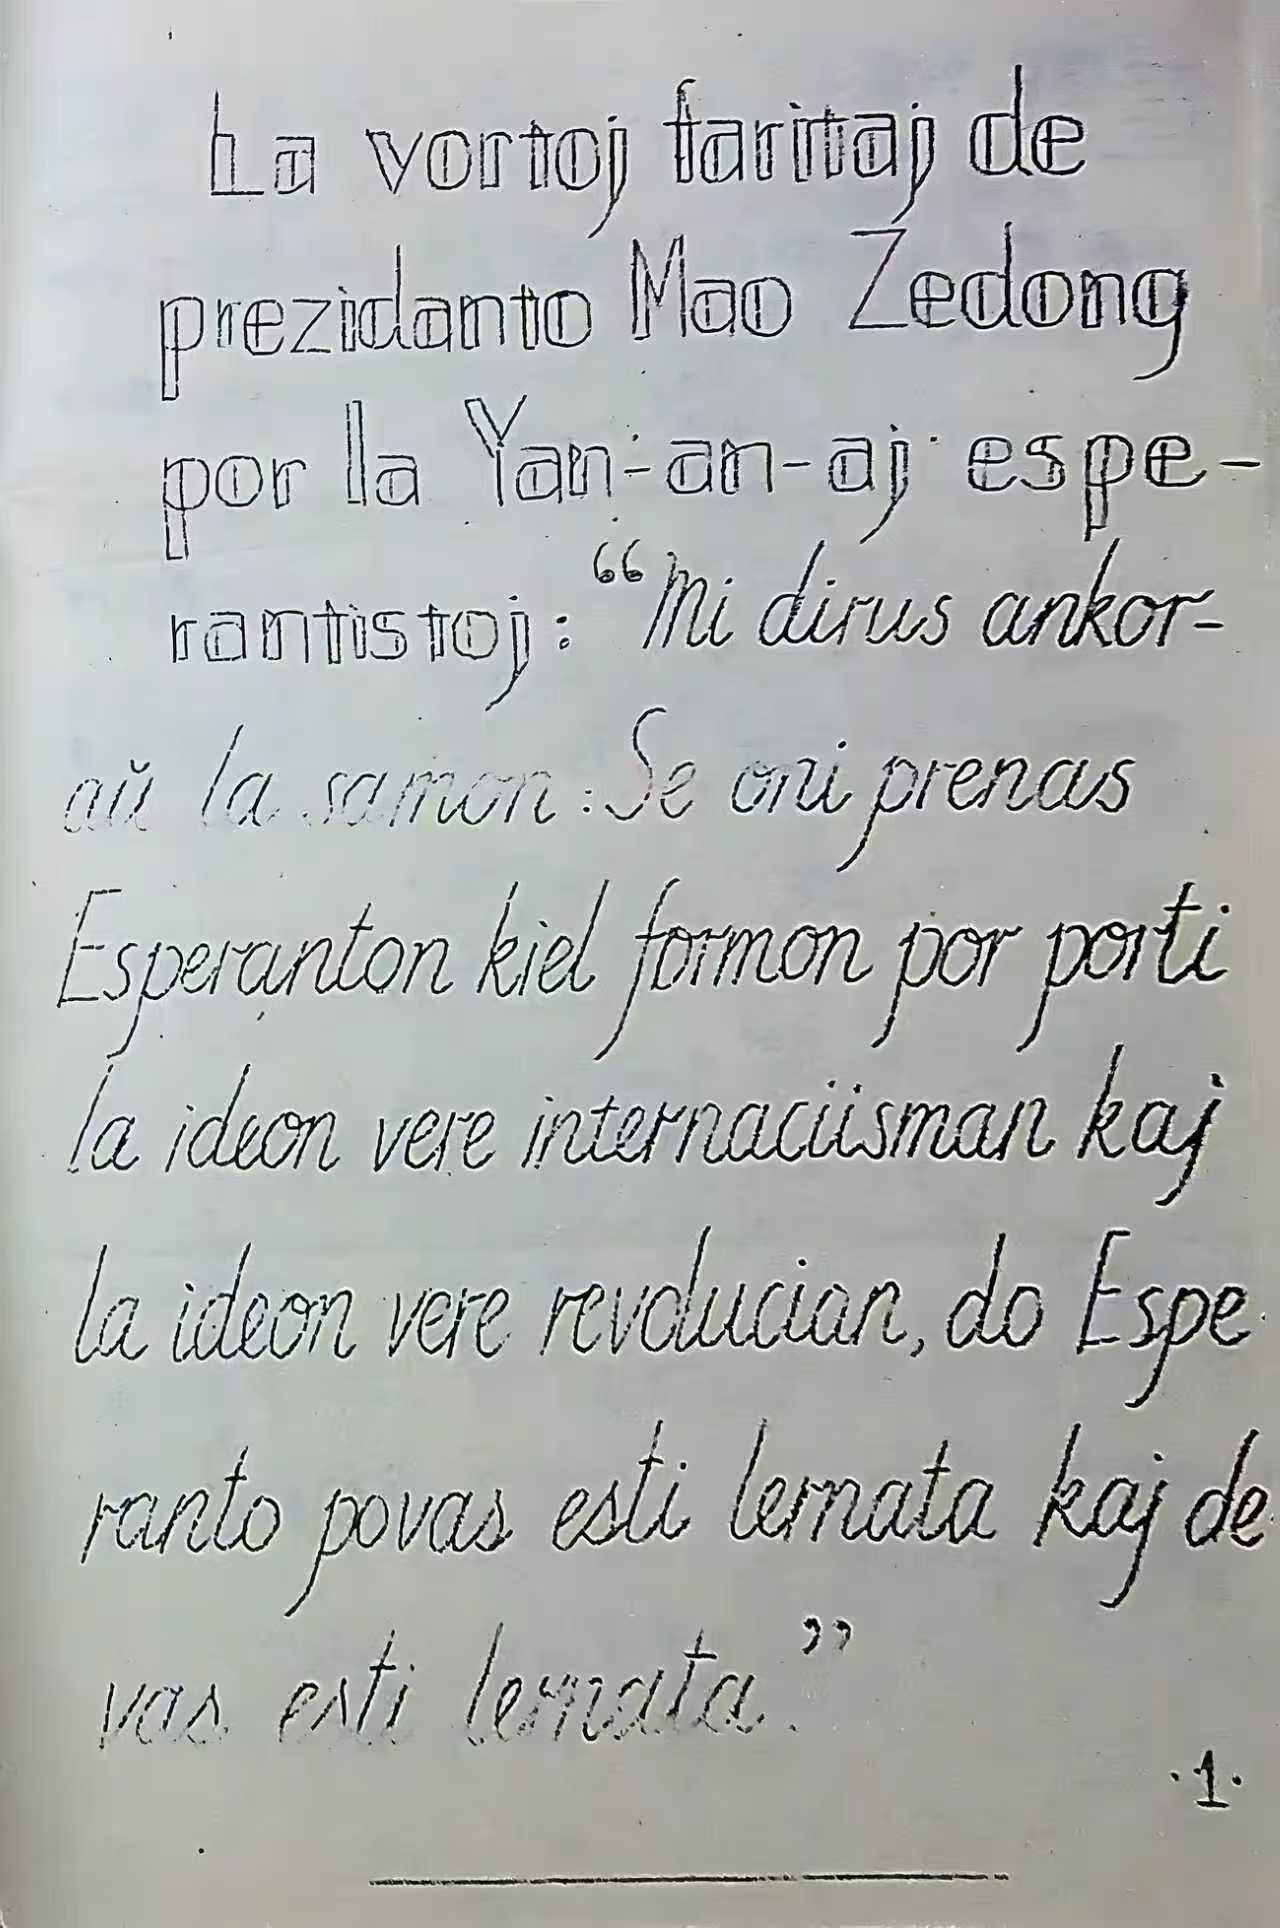 La vortoj faritaj de
prezidanto Mao Zedong
por la Yan-an-aj espe-
rantistoj: “Mi dirus ankor-
aŭ la samon: Se oni prenas
Esperanton kiel formon por porti
la ideon vere internaciisman kaj
la ideon vere revolucian, do Espe-
ranto povas esti lernata kaj de-
vas esti lernata.”
·1·